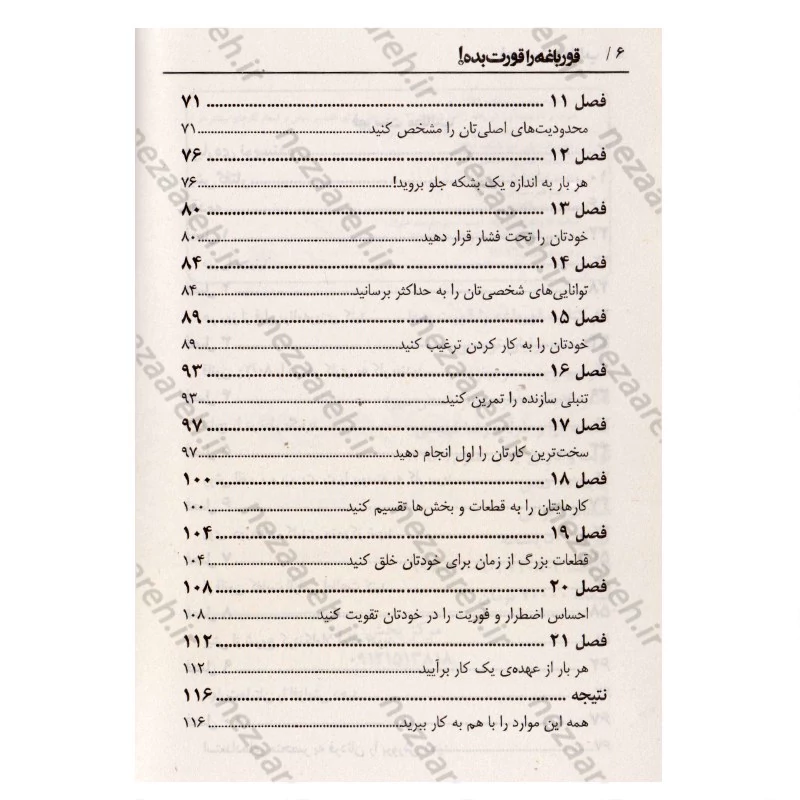 ۶ / قورباغه را قورت بده!
فصل ۱۱ ........ ۷۱
محدودیت‌های اصلی‌تان را مشخص کنید ........ ۷۱
فصل ۱۲ ........ ۷۶
هر بار به اندازه یک بشکه جلو بروید! ........ ۷۶
فصل ۱۳ ........ ۸۰
خودتان را تحت فشار قرار دهید ........ ۸۰
فصل ۱۴ ........ ۸۴
توانایی‌های شخصی‌تان را به حداکثر برسانید ........ ۸۴
فصل ۱۵ ........ ۸۹
خودتان را به کار کردن ترغیب کنید ........ ۸۹
فصل ۱۶ ........ ۹۳
تنبلی سازنده را تمرین کنید ........ ۹۳
فصل ۱۷ ........ ۹۷
سخت‌ترین کارتان را اول انجام دهید ........ ۹۷
فصل ۱۸ ........ ۱۰۰
کارهایتان را به قطعات و بخش‌ها تقسیم کنید ........ ۱۰۰
فصل ۱۹ ........ ۱۰۴
قطعات بزرگ از زمان برای خودتان خلق کنید ........ ۱۰۴
فصل ۲۰ ........ ۱۰۸
احساس اضطرار و فوریت را در خودتان تقویت کنید ........ ۱۰۸
فصل ۲۱ ........ ۱۱۲
هر بار از عهده‌ی یک کار برآیید ........ ۱۱۲
نتیجه ........ ۱۱۶
همه این موارد را با هم به کار ببرید ........ ۱۱۶
nezaareh.ir